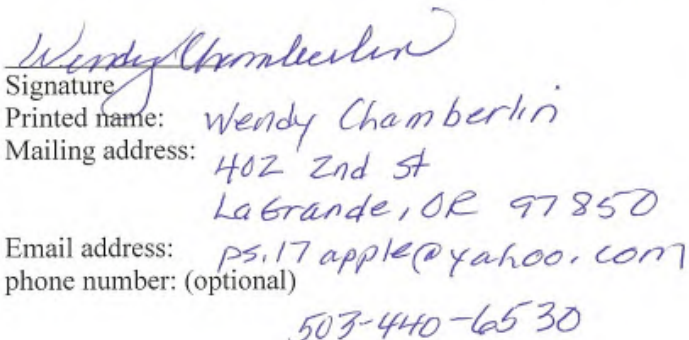 Wendy Chamberlin
Signature
Printed name: Wendy Chamberlin
Mailing address: 402 2nd St
LaGrande, OR 97850
Email address: ps.17apple@yahoo.com
phone number: (optional)
503-440-6530